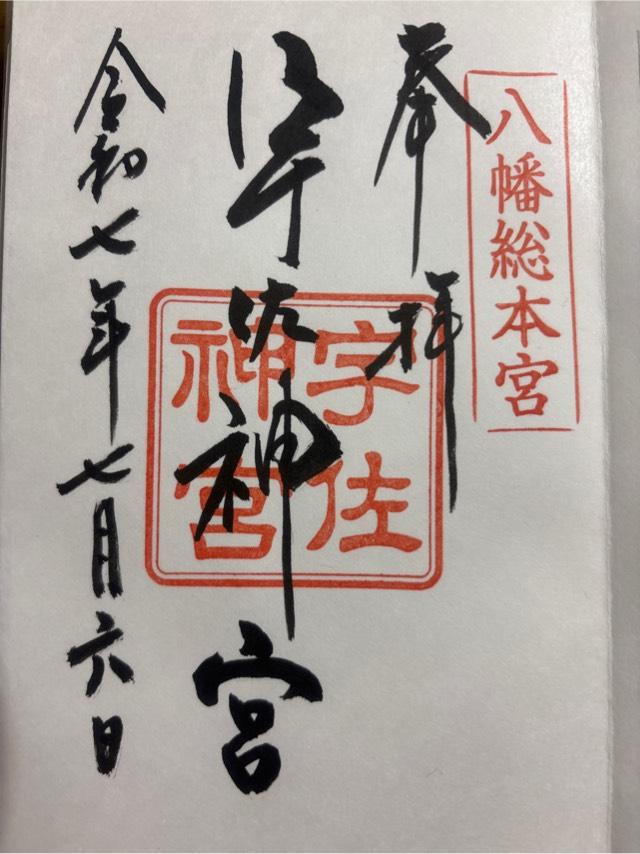 八幡総本宮
奉拝
宇佐神宮
宇佐
神宮
令和七年七月六日